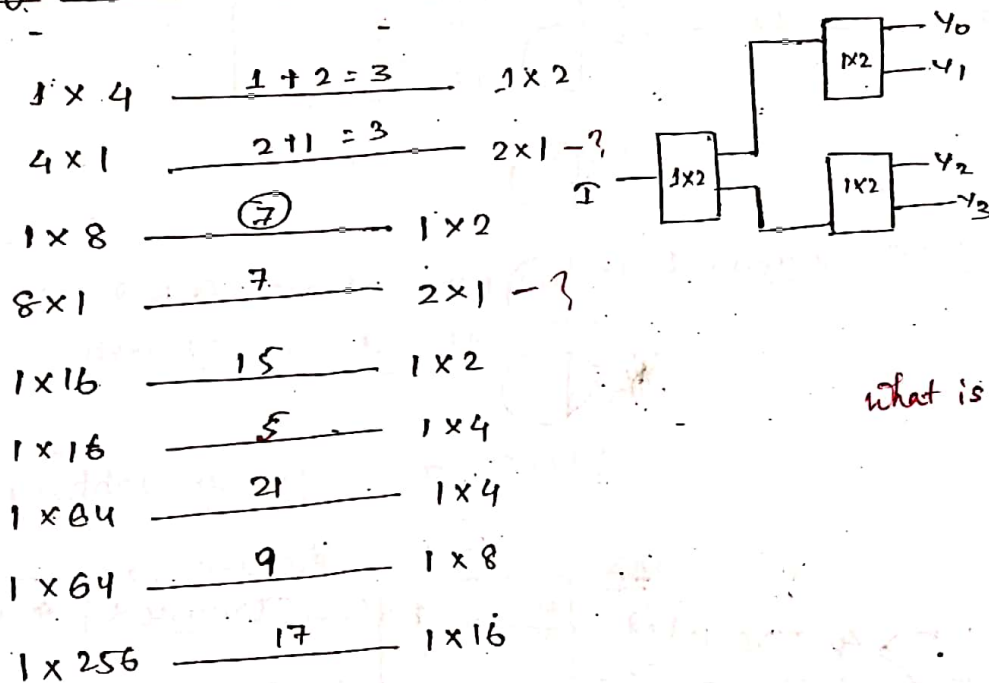 1 × 4 1 + 2 = 3 1 × 2
4 × 1 2+1 = 3 2×1 - ?
1 × 8 7 1 × 2
8×1 7. 2×1 - ?
1×16 15 1 × 2
1 × 16 5 1 × 4
1 × 64 21 1 × 4
1 × 64 9 1 × 8
1 × 256 17 1 × 16
I 1×2
1×2 Y0
Y1
1×2 Y2
Y3
what is